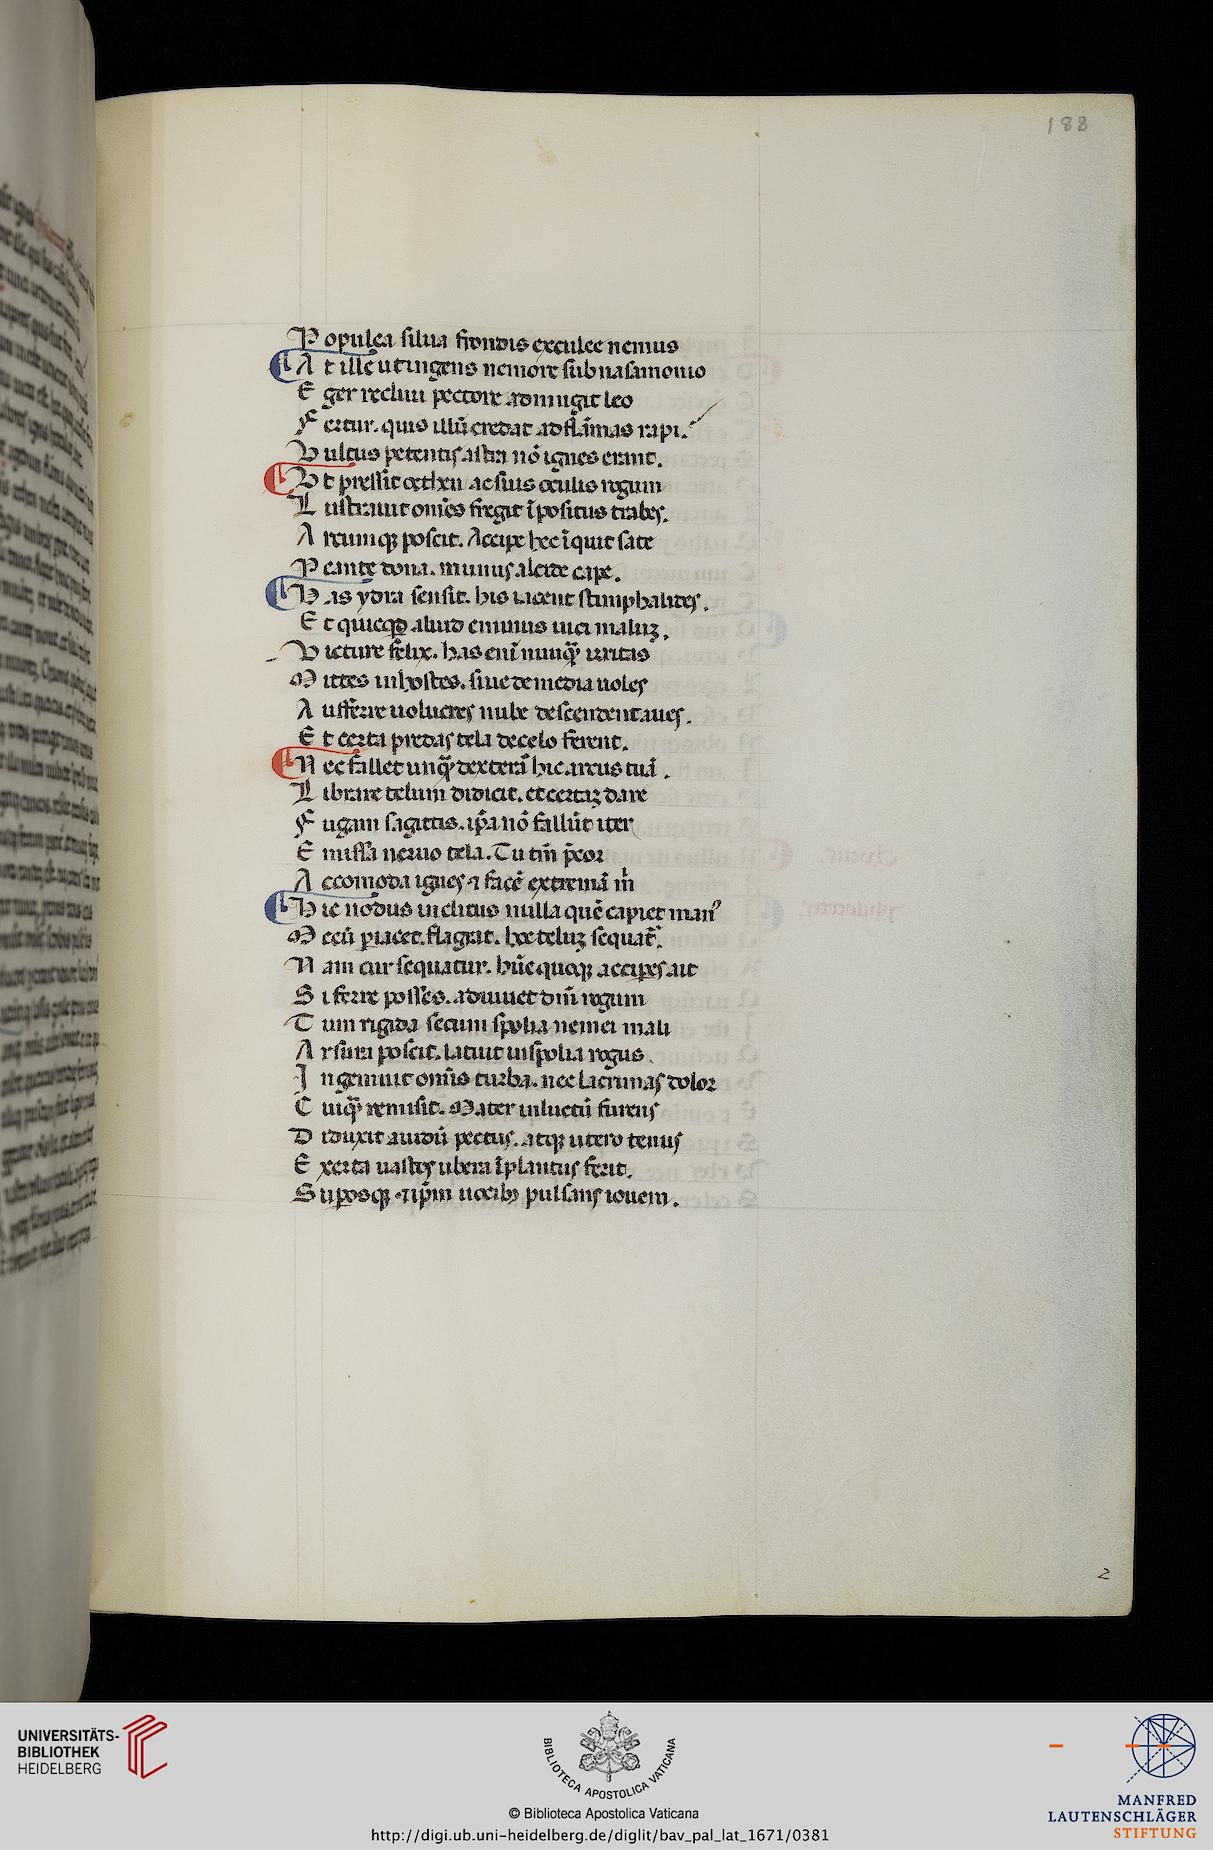 188
Populea silua frondis exculee nemus
At ille ut ingens nemore sub nasamonio
Eger recluii pectore admugit leo
Fertur. quis illū credat ad flāmas rapi.
Vultus petentis astra nō ignes erant.
Vt pressit oethen ac suis oculis rogum
Lustrauit omēs fregit īpositus trabes.
Arcumqꝫ poscit. Accipe hec īquit sate
Peante dona. munus alcide cape.
Has ydra sensit. his iacent stimphalides.
Et quicqđ aliud eminus uici maluꝫ.
Victure felix. has enī nunqͣꝫ irritas
Mittes in hostes. siue de media uoles
Auferre uolucres nube descendent aues.
Et certa predas tela de celo ferent.
Nec fallet unqͣꝫ dexterā hic arcus tuā.
Librare telum didicit. et certaꝫ dare
Fugam sagittis. ip̄a nō fallūt iter
Emissa neruo tela. Tu tm̄ p̄cor
Accomoda ignes ⁊ facē extremā m̄
Hic nodus inclitus nulla quē capiet manꝰ
Mecū p iacet. flagrat. hoc teluꝫ sequat᷑.
Nam cur sequatur. hūc quoqꝫ accipes ait
Si ferre posses. adiuuet dn̄m rogum
Tum rigida secum spolia nemei mali
Arsura poscit. latuit in spolia rogus.
Ingemuit omīs turba. nec lacrimas dolor
Cuiqͣꝫ remisit. Mater in luctū furens
Diduxit auidū pectus. atqꝫ utero tenus
Exerta uastos ubera īplantus ferit.
Suposqꝫ ⁊ ip̄m uocibꝫ pulsans iouem.
2
UNIVERSITÄTS-
BIBLIOTHEK
HEIDELBERG
BIBLIOTECA APOSTOLICA VATICANA
© Biblioteca Apostolica Vaticana
http://digi.ub.uni-heidelberg.de/diglit/bav_pal_lat_1671/0381
MANFRED
LAUTENSCHLÄGER
STIFTUNG